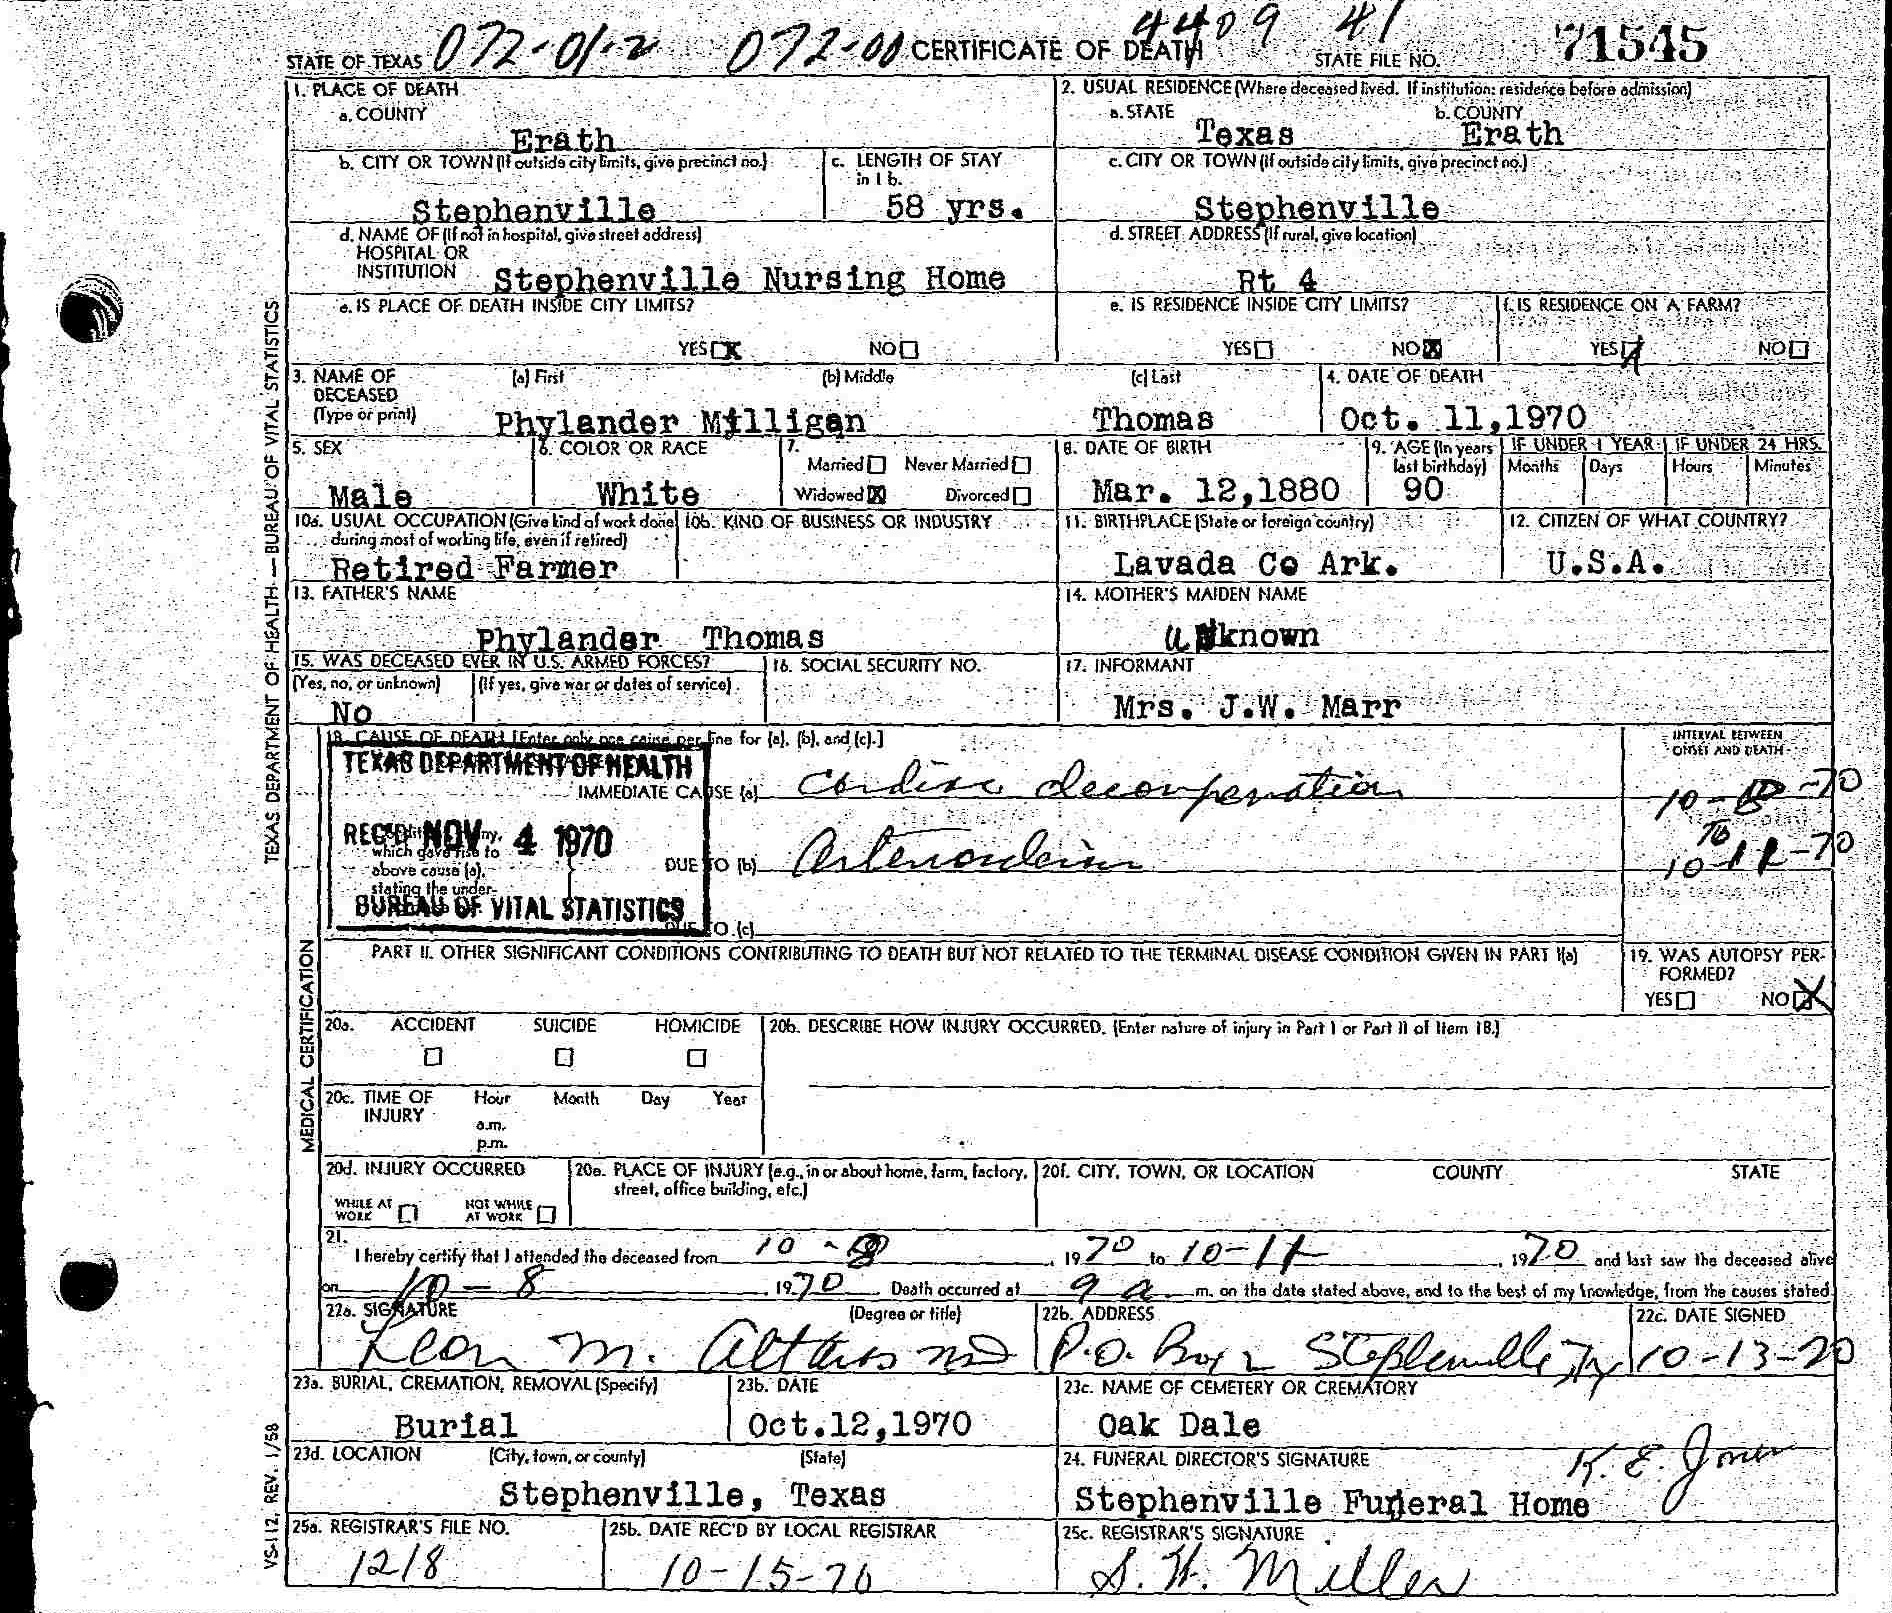 4409 41
STATE OF TEXAS 072-01-2 072-00 CERTIFICATE OF DEATH STATE FILE NO. 71545
1. PLACE OF DEATH
a. COUNTY
Erath
2. USUAL RESIDENCE (Where deceased lived. If institution: residence before admission)
a. STATE b. COUNTY
Texas Erath
b. CITY OR TOWN (If outside city limits, give precinct no.)
Stephenville
c. LENGTH OF STAY
in 1 b.
58 yrs.
c. CITY OR TOWN (If outside city limits, give precinct no.)
Stephenville
d. NAME OF (If not in hospital, give street address)
HOSPITAL OR
INSTITUTION Stephenville Nursing Home
d. STREET ADDRESS (If rural, give location)
Rt 4
e. IS PLACE OF DEATH INSIDE CITY LIMITS?
YES X NO
e. IS RESIDENCE INSIDE CITY LIMITS?
YES NO X
f. IS RESIDENCE ON A FARM?
YES X NO
3. NAME OF
DECEASED
(Type or print)
(a) First (b) Middle (c) Last
Phylander Milligan Thomas
4. DATE OF DEATH
Oct. 11,1970
5. SEX
Male
6. COLOR OR RACE
White
7.
Married Never Married
Widowed X Divorced
8. DATE OF BIRTH
Mar. 12,1880
9. AGE (In years
last birthday)
90
IF UNDER 1 YEAR
Months Days
IF UNDER 24 HRS.
Hours Minutes
10a. USUAL OCCUPATION (Give kind of work done
during most of working life, even if retired)
Retired Farmer
10b. KIND OF BUSINESS OR INDUSTRY
11. BIRTHPLACE (State or foreign country)
Lavada Co Ark.
12. CITIZEN OF WHAT COUNTRY?
U.S.A.
13. FATHER'S NAME
Phylander Thomas
14. MOTHER'S MAIDEN NAME
Unknown
15. WAS DECEASED EVER IN U.S. ARMED FORCES?
(Yes, no, or unknown) (If yes, give war or dates of service)
No
16. SOCIAL SECURITY NO.
17. INFORMANT
Mrs. J.W. Marr
18. CAUSE OF DEATH [Enter only one cause per line for (a), (b), and (c).]
INTERVAL BETWEEN
ONSET AND DEATH
TEXAS DEPARTMENT OF HEALTH
IMMEDIATE CAUSE (a) Cardiac decompensation
REC'D NOV 4 1970
which gave rise to
above cause (a),
stating the under-
BUREAU OF VITAL STATISTICS
DUE TO (b)
To
10-11-70
DUE TO (c)
PART II. OTHER SIGNIFICANT CONDITIONS CONTRIBUTING TO DEATH BUT NOT RELATED TO THE TERMINAL DISEASE CONDITION GIVEN IN PART I(a)
19. WAS AUTOPSY PER-
FORMED?
YES NO X
20a. ACCIDENT SUICIDE HOMICIDE
20b. DESCRIBE HOW INJURY OCCURRED. (Enter nature of injury in Part I or Part II of Item 18.)
20c. TIME OF
INJURY
Hour Month Day Year
a.m.
p.m.
20d. INJURY OCCURRED
WHILE AT
WORK
NOT WHILE
AT WORK
20e. PLACE OF INJURY (e.g., in or about home, farm, factory,
street, office building, etc.)
20f. CITY, TOWN, OR LOCATION COUNTY STATE
21.
I hereby certify that I attended the deceased from 10-8, 1970 to 10-11, 1970 and last saw the deceased alive
on 10-8, 1970 Death occurred at 9 a m. on the date stated above, and to the best of my knowledge, from the causes stated.
22a. SIGNATURE (Degree or title)
Leon M. Althaus MD
22b. ADDRESS
P.O. Box 2 Stephenville Tx
22c. DATE SIGNED
10-13-70
23a. BURIAL, CREMATION, REMOVAL (Specify)
Burial
23b. DATE
Oct.12,1970
23c. NAME OF CEMETERY OR CREMATORY
Oak Dale
23d. LOCATION (City, town, or county) (State)
Stephenville, Texas
24. FUNERAL DIRECTOR'S SIGNATURE
K. E. Jones
Stephenville Funeral Home
25a. REGISTRAR'S FILE NO.
1218
25b. DATE REC'D BY LOCAL REGISTRAR
10-15-70
25c. REGISTRAR'S SIGNATURE
S. H. Miller
TEXAS DEPARTMENT OF HEALTH — BUREAU OF VITAL STATISTICS
MEDICAL CERTIFICATION
VS-112, REV. 1/58